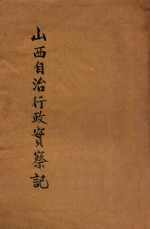 山西自治行政實察記